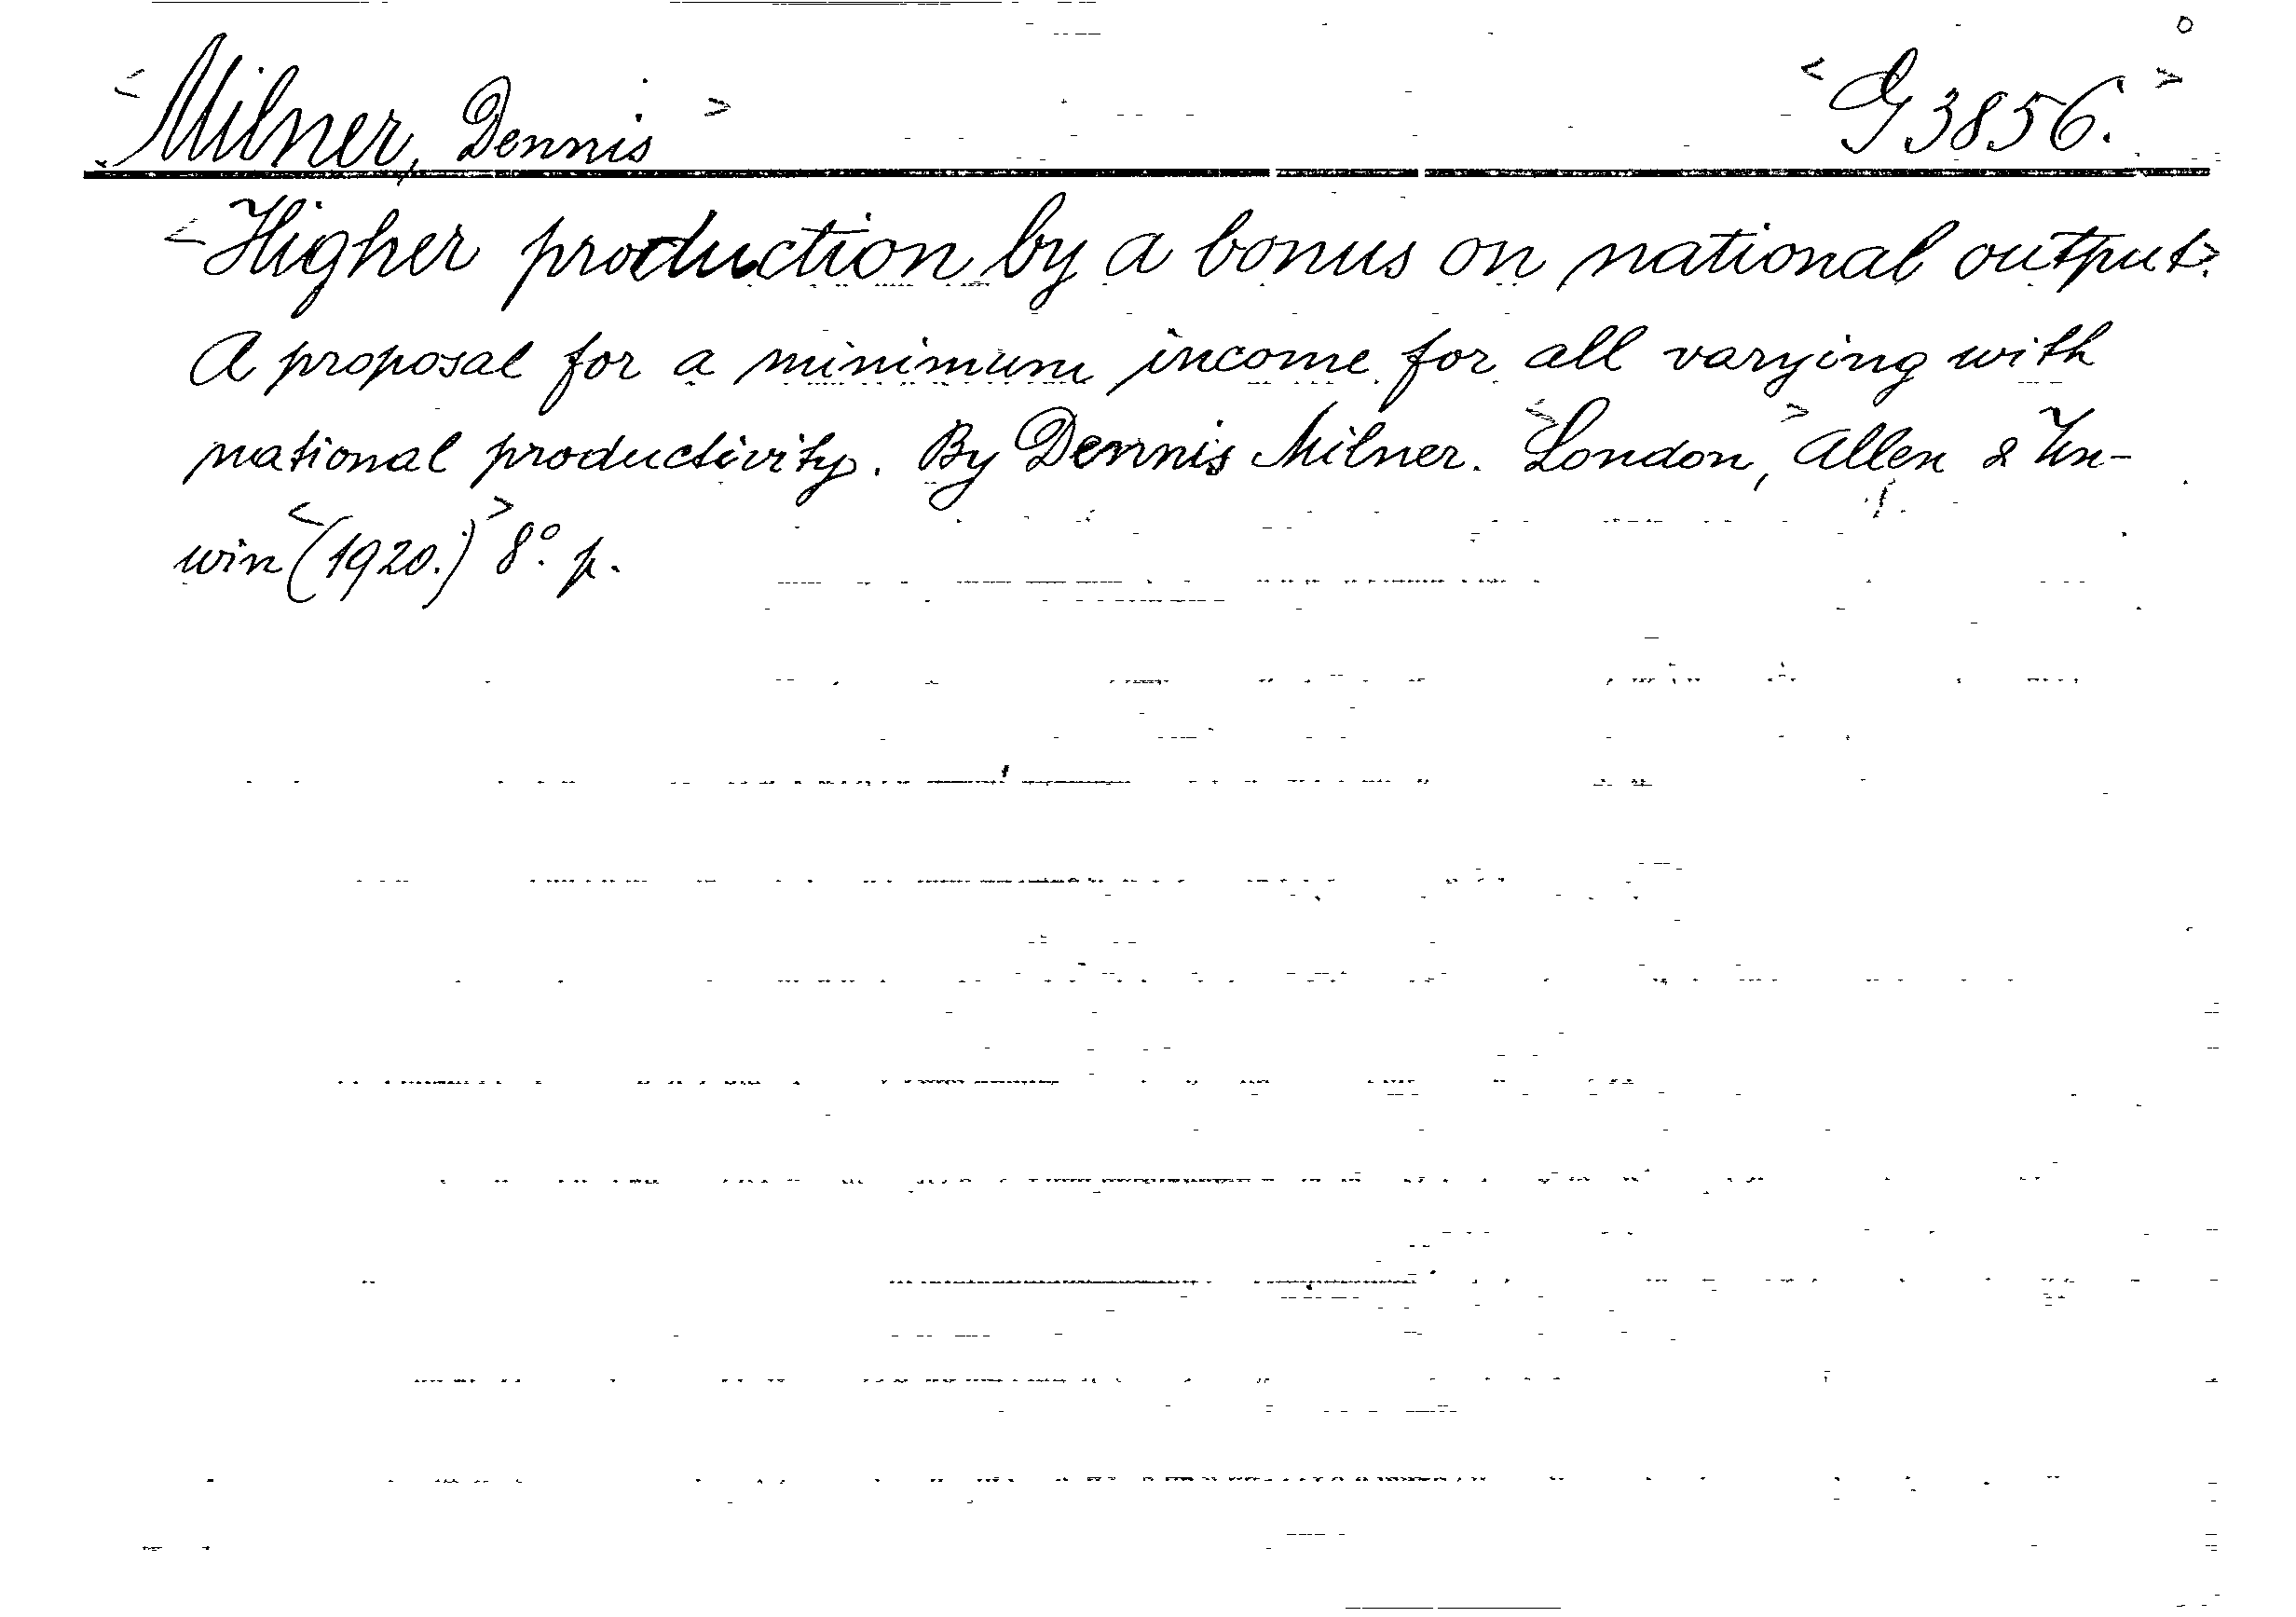 <Milner, Dennis> <G 3856.>
<Higher production by a bonus on national output>.
A proposal for a minimum income for all varying with
national productivity. By Dennis Milner. <London,> Allen & Un-
win <(1920.)> 8°. p.